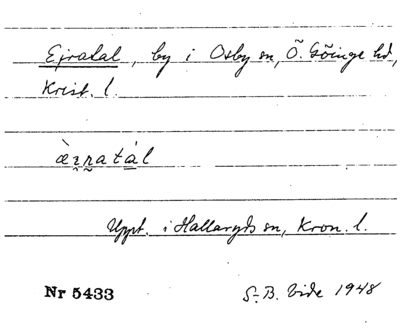 Ejratal, by i Osby sn, Ö. Göinge hd,
Krist. l.
Uppt. i Hallaryds sn, Kron. l.
Nr 5433
S.-B. Vide 1948